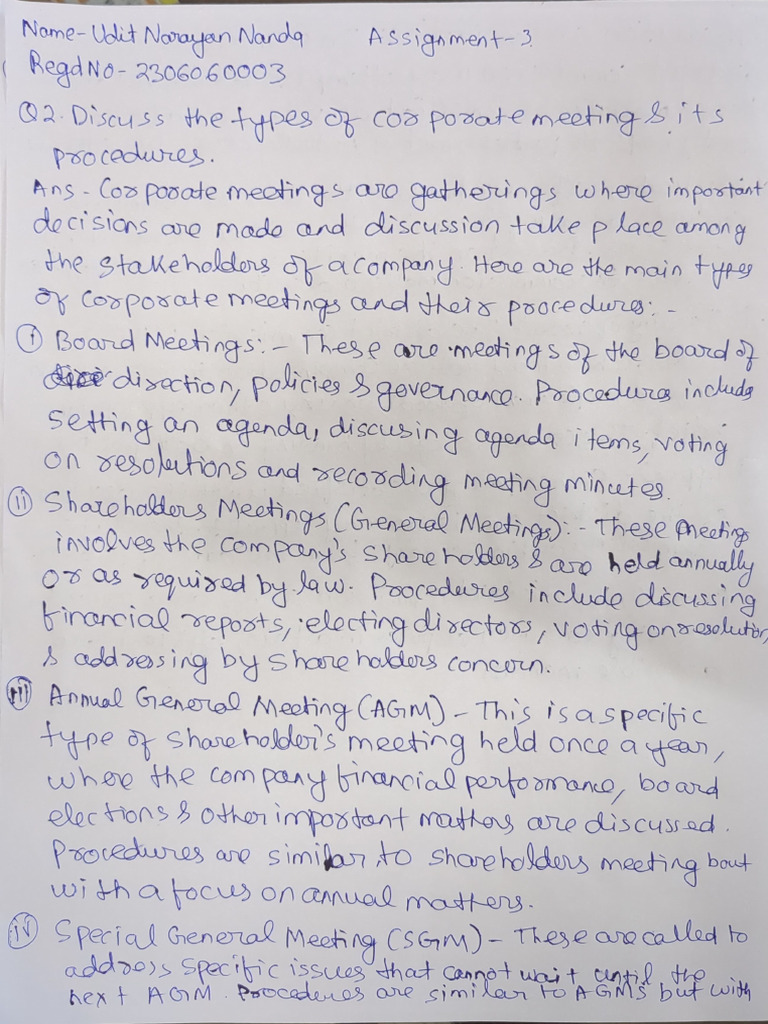 Name- Udit Narayan Nanda Assignment-3
Regd No- 2306060003
Q2. Discuss the types of corporate meeting & its
procedures.
Ans - Corporate meetings are gatherings where important
decisions are made and discussion take place among
the stakeholders of a company. Here are the main types
of corporate meetings and their procedures: -
(i) Board Meetings: - These are meetings of the board of
direction, policies & governance. Procedures include
setting an agenda, discusing agenda items, voting
on resolutions and recording meeting minutes.
(ii) Shareholders Meetings (General Meetings): - These meeting
involves the company's shareholders & are held annually
or as required by law. Procedures include discussing
financial reports, electing directors, voting on resolution,
& addressing by shareholders concern.
(iii) Annual General Meeting (AGM) - This is a specific
type of shareholder's meeting held once a year,
where the company financial performance, board
elections & other important matters are discussed.
Procedures are similar to shareholders meeting bout
with a focus on annual matters.
(iv) Special General Meeting (SGM) - These are called to
address specific issues that cannot wait until the
next AGM. Procedures are similar to AGMS but with